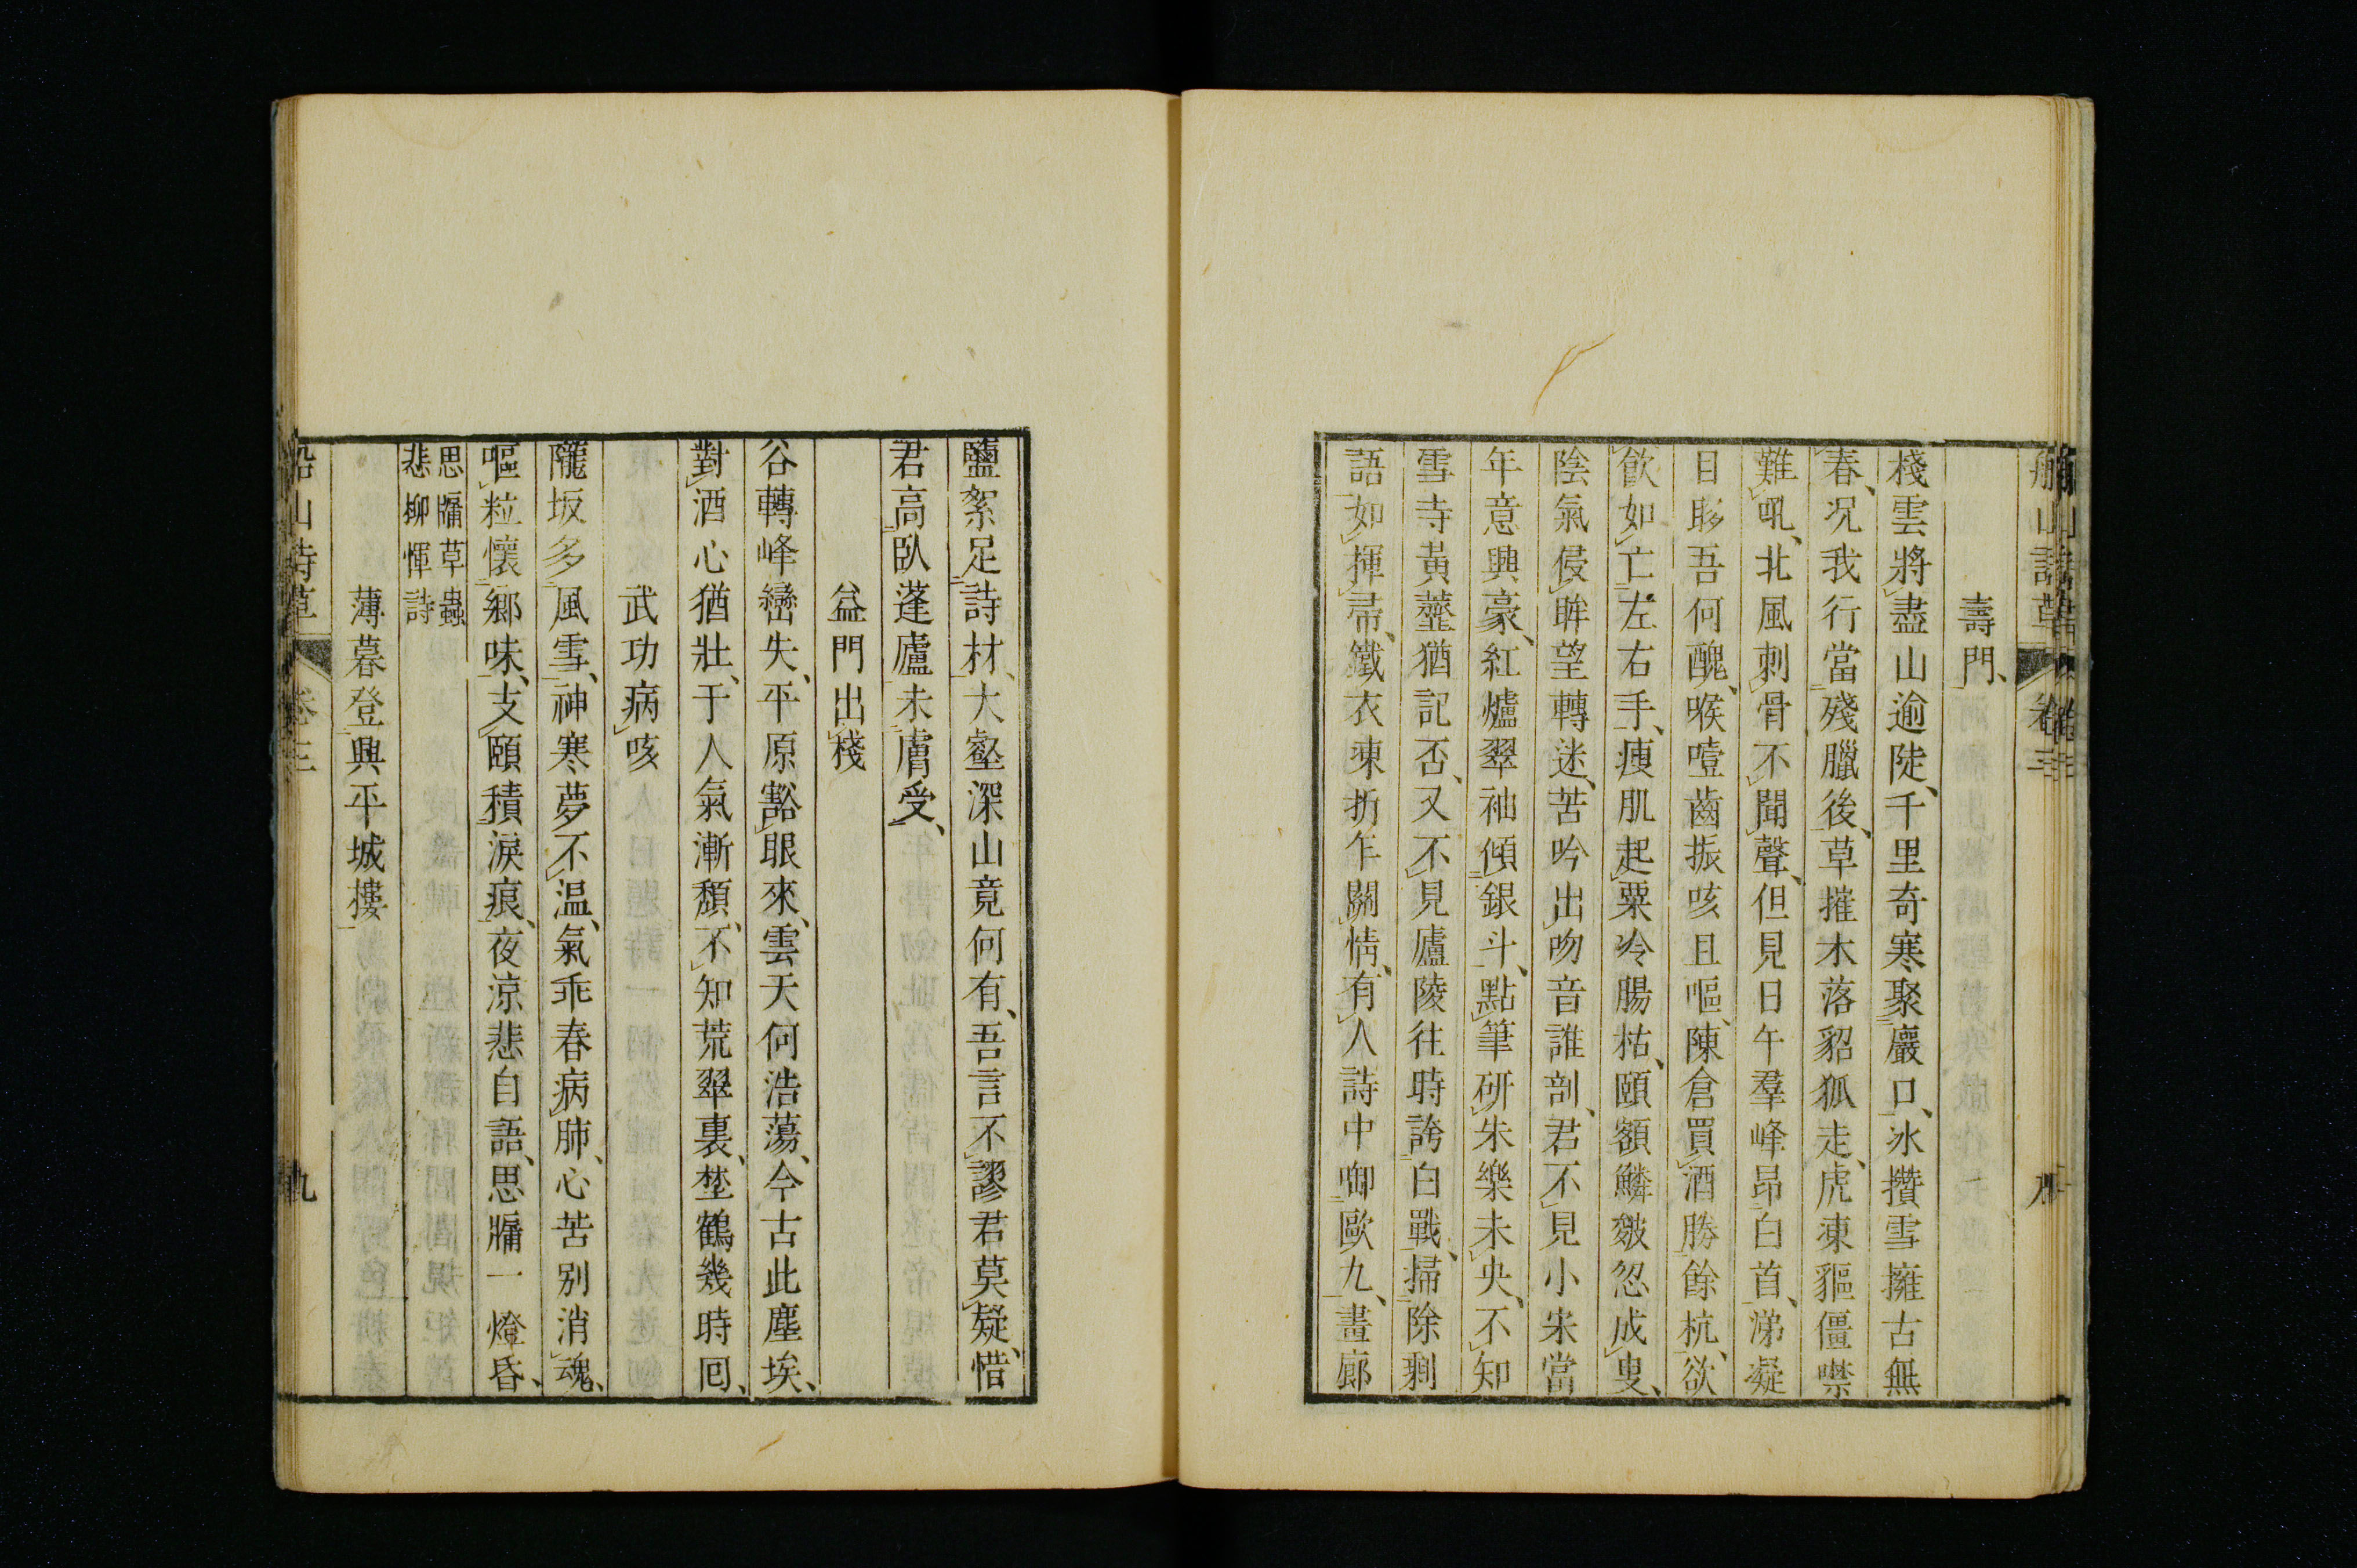 船山詩草 卷三
壽門
棧雲將盡山逾陡千里奇寒聚巖口冰攢雪擁古無
春況我行當殘臘後草摧木落貂狐走虎凍貙僵噤
難吼北風刺骨不聞聲但見日午羣峰昂白首涕凝
目眵吾何醜喉噎齒振咳且嘔陳倉買酒勝餘杭欲
飲如亡左右手瘐肌起粟冷腸枯頤額鱗皴忽成叟
陰氣侵眸望轉迷苦吟出吻音誰剖君不見小宋當
年意興豪紅爐翠袖傾銀斗點筆研朱樂未央不知
雪寺黃虀猶記否又不見廬陵往時誇白戰掃除剩
語如揮帚鐵衣凍折乍關情有人詩中啣歐九畫廊
鹽絮足詩材大壑深山竟何有吾言不謬君莫疑惜
君高臥蓬廬未膚受
益門出棧
谷轉峰巒失平原豁眼來雲天何浩蕩今古此塵埃
對酒心猶壯于人氣漸頹不知荒翠裏埜鶴幾時回
武功病咳
隴坂多風雪神寒夢不温氣乖春病肺心苦別消魂
嘔粒懷鄉味支頤積淚痕夜涼悲自語思牖一燈昏
思牖草蟲
悲柳惲詩
薄暮登興平城樓
船山詩草 卷三 九